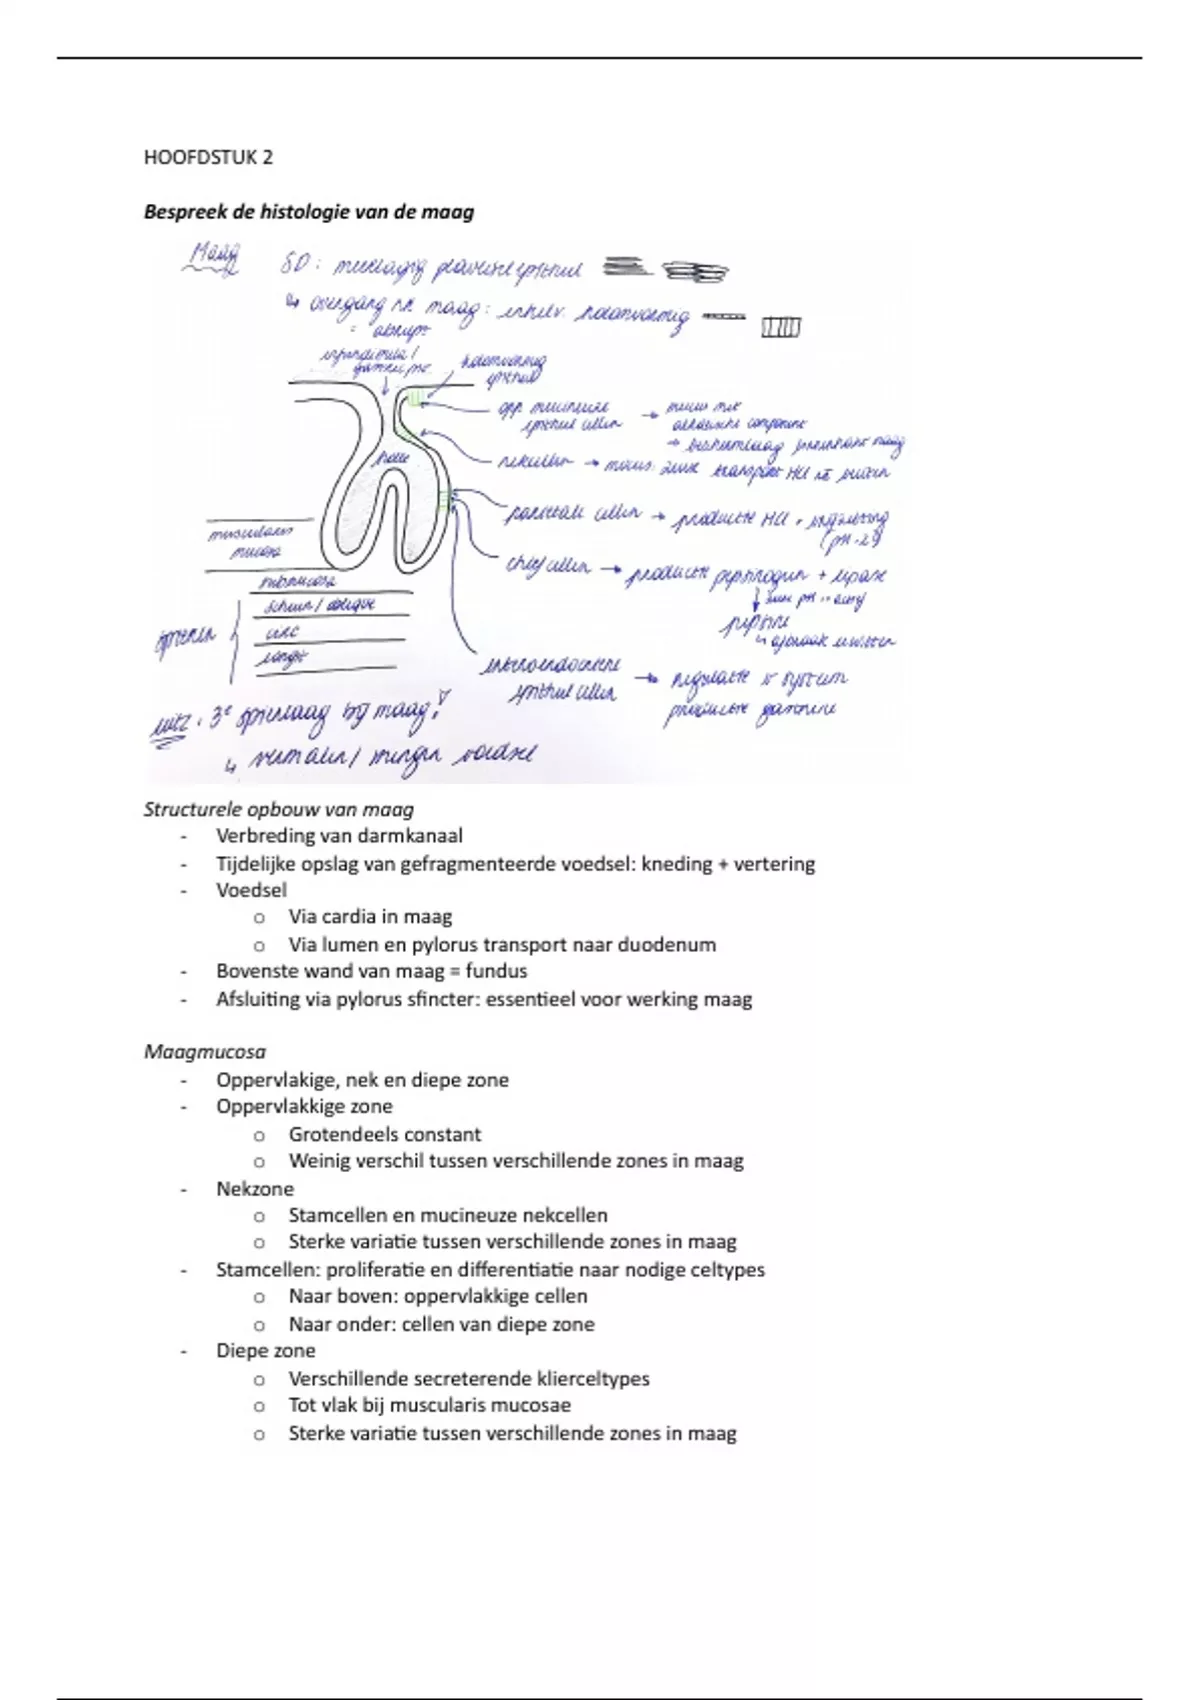 HOOFDSTUK 2
Bespreek de histologie van de maag
Maag
SD: meerlagig epitheel
↳ overgang nr maag:
= abrupt
epitheel
opp. mucineuze
epitheel cellen → mucus met
alkalische component
→ beschermlaag binnenkant maag
nekcellen → mucus: zure transport HCl nr buiten
pariëtale cellen → productie HCl +
(pH ~2)
chief cellen → productie pepsinogeen + lipase
↓ zure pH
pepsine
↳ afbraak eiwitten
entero-endocriene
epitheel cellen → regulatie
productie
muscularis
mucosa
submucosa
schuin / oblique
circ
longit
spieren
: 3e spierlaag bij maag!
↳ vermalen / mengen voedsel
Structurele opbouw van maag
- Verbreding van darmkanaal
- Tijdelijke opslag van gefragmenteerde voedsel: kneding + vertering
- Voedsel
o Via cardia in maag
o Via lumen en pylorus transport naar duodenum
- Bovenste wand van maag = fundus
- Afsluiting via pylorus sfincter: essentieel voor werking maag
Maagmucosa
- Oppervlakige, nek en diepe zone
- Oppervlakkige zone
o Grotendeels constant
o Weinig verschil tussen verschillende zones in maag
- Nekzone
o Stamcellen en mucineuze nekcellen
o Sterke variatie tussen verschillende zones in maag
- Stamcellen: proliferatie en differentiatie naar nodige celtypes
o Naar boven: oppervlakkige cellen
o Naar onder: cellen van diepe zone
- Diepe zone
o Verschillende secreterende klierceltypes
o Tot vlak bij muscularis mucosae
o Sterke variatie tussen verschillende zones in maag